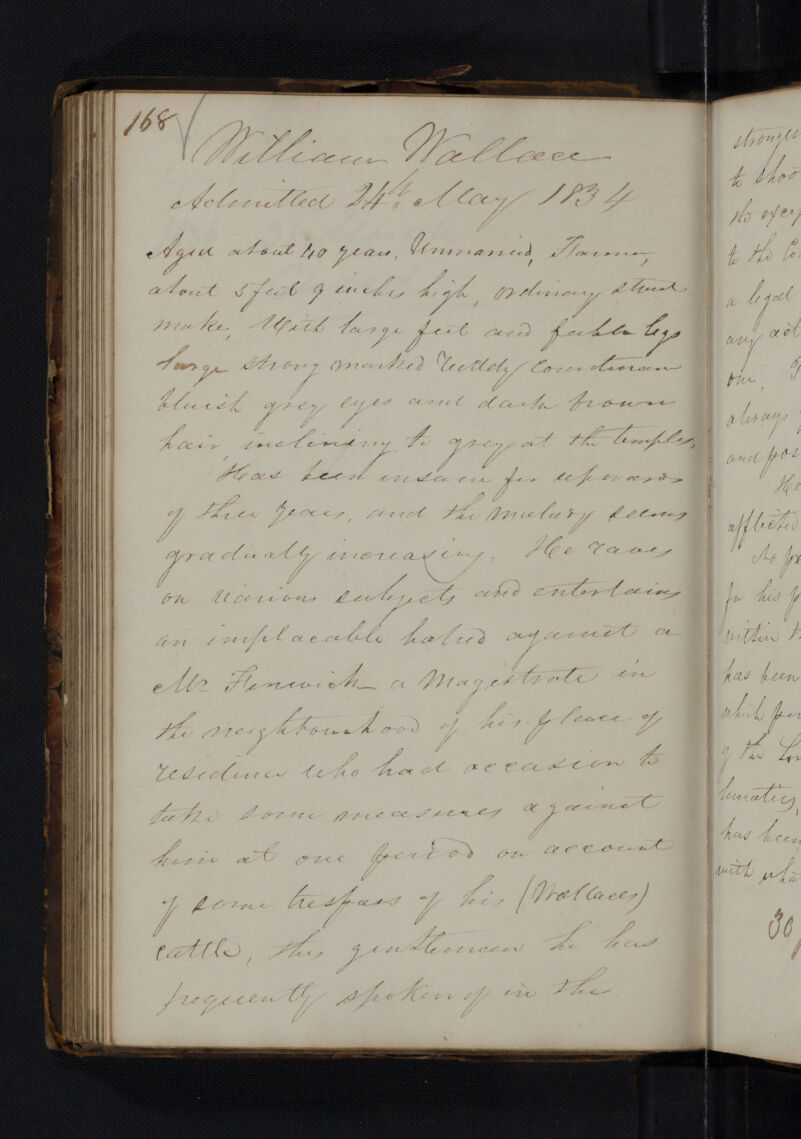 168
William Wallace
Admitted 24th May 1834
Aged about 40 years, Unmarried, Farmer,
about 5 feet 9 inches high, ordinary stout
make, With large feet and feeble legs
large strong marked ruddy Countenance
bluish grey eyes and dark brown
hair, inclining to grey at the temples,
Has been insane for upwards
of three years, and the malady seems
gradually increasing. He raves
on various subjects and entertains
an implacable hatred against a
Mr Fenwick a Magistrate in
the neighbourhood of his place of
residence who had occasion to
take some measures against
him at one period on account
of some trespass of his (Wallaces)
cattle, this gentleman he has
frequently spoken of in the
stronges
to shoo
the excep
to the Co
a legal
any act
one,
always
and pos
He
afflicted
No pr
for his p
within th
has been
which per
of the Lun
lunatics,
has been
with wha
30